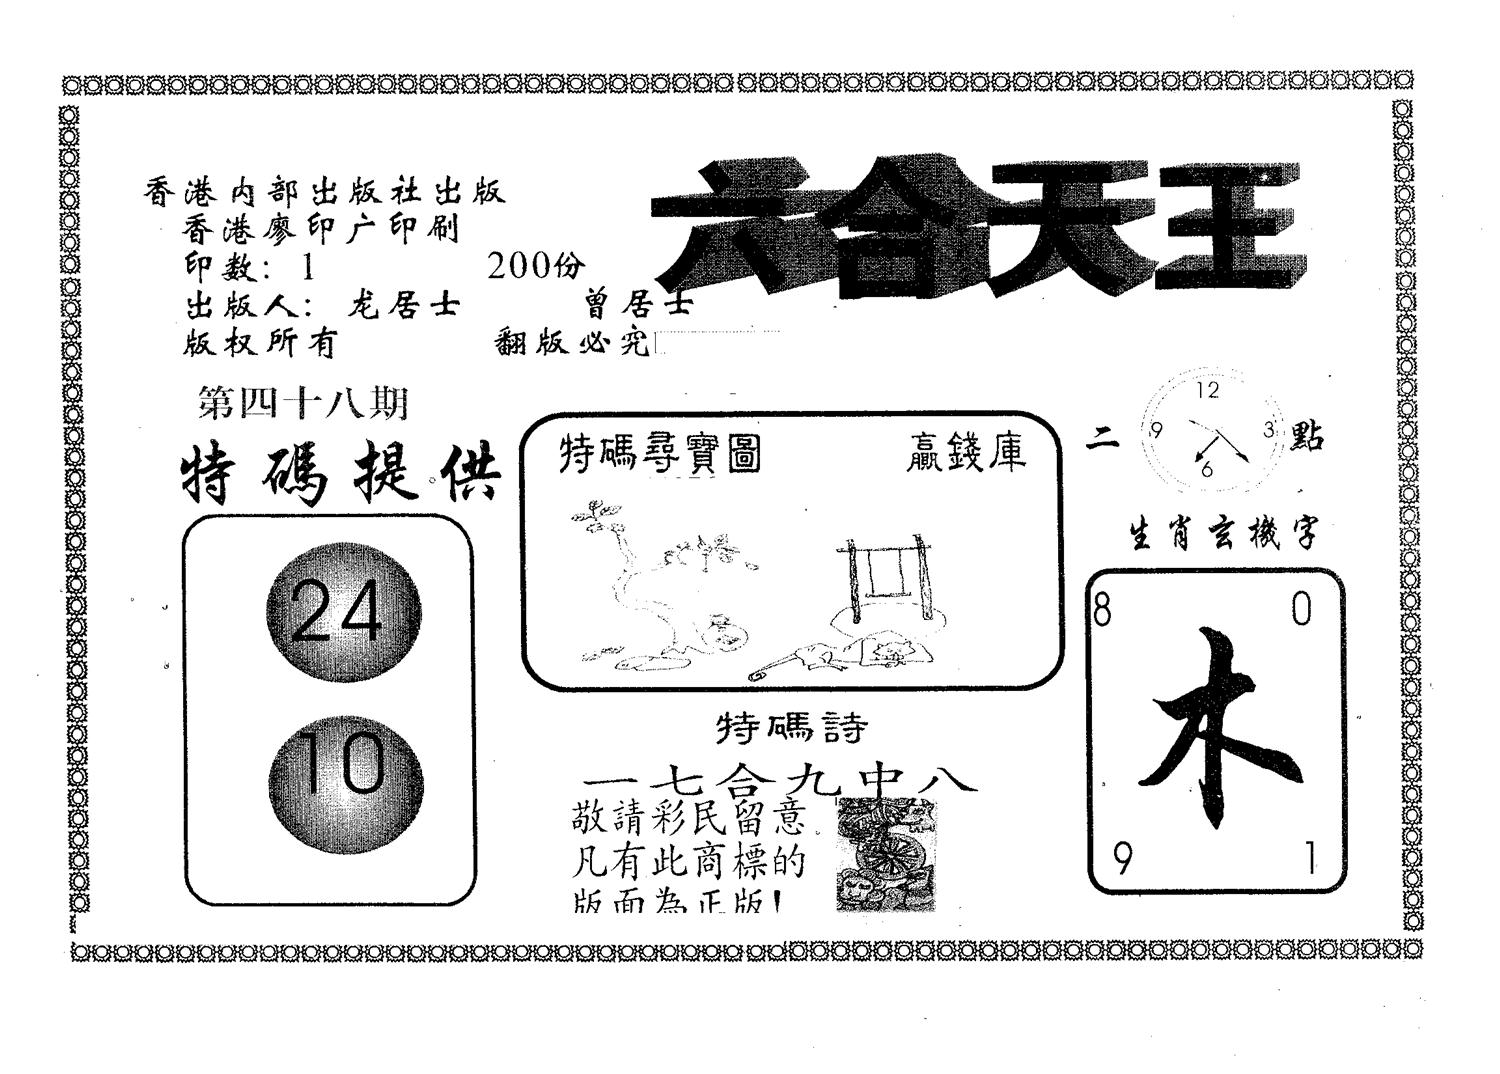 六合天王
香港内部出版社出版
香港廖印广印刷
印数：1 200份
出版人：龙居士 曾居士
版权所有 翻版必究
第四十八期
特碼提供
24
10
特碼尋寶圖 贏錢庫
二 12 9 3 6 點
生肖玄機字
8 0
木
9 1
特碼詩
一七合九中八
敬請彩民留意
凡有此商標的
版面為正版！